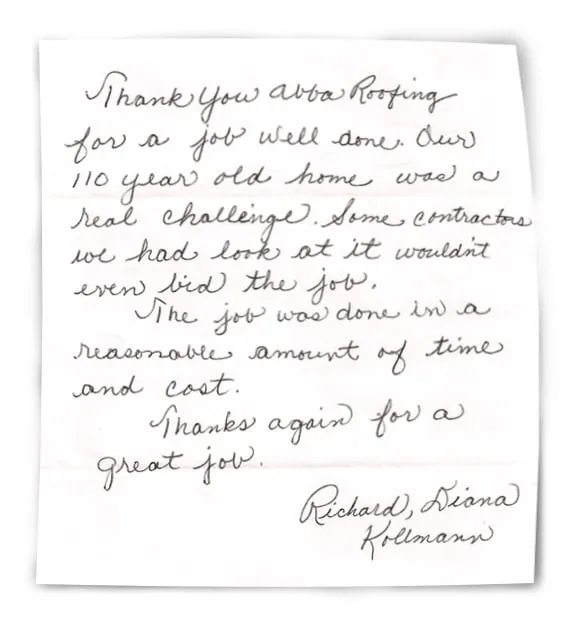 Thank You Abba Roofing
for a job well done. Our
110 year old home was a
real challenge. Some contractors
we had look at it wouldn't
even bid the job.
The job was done in a
reasonable amount of time
and cost.
Thanks again for a
great job.
Richard, Diana
Kollmann